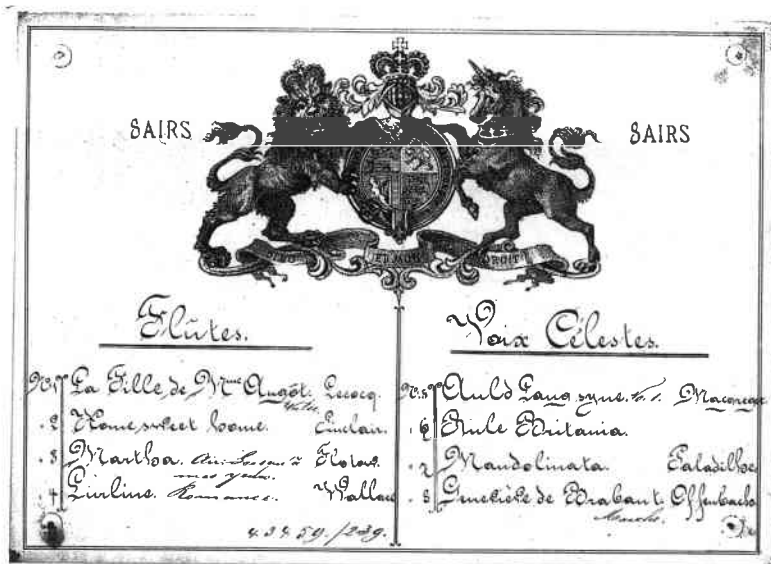 SAIRS SAIRS
DIEU ET MON DROIT
Flûtes.
No. 1 La Fille de Mme Angôt. Lecocq.
. 2 Home sweet home. Sinclair.
. 3 Martha. Flotow.
mes yeux.
. 4 Lurline. Romance. Wallace
4.34.59./239.
Voix Célestes.
No. 5 Auld Lang syne. Macgregor
. 6 Rule Britania.
. 7 Mandolinata. Paladilhe.
. 8 Geneviève de Brabant. Offenbach.
Marche.